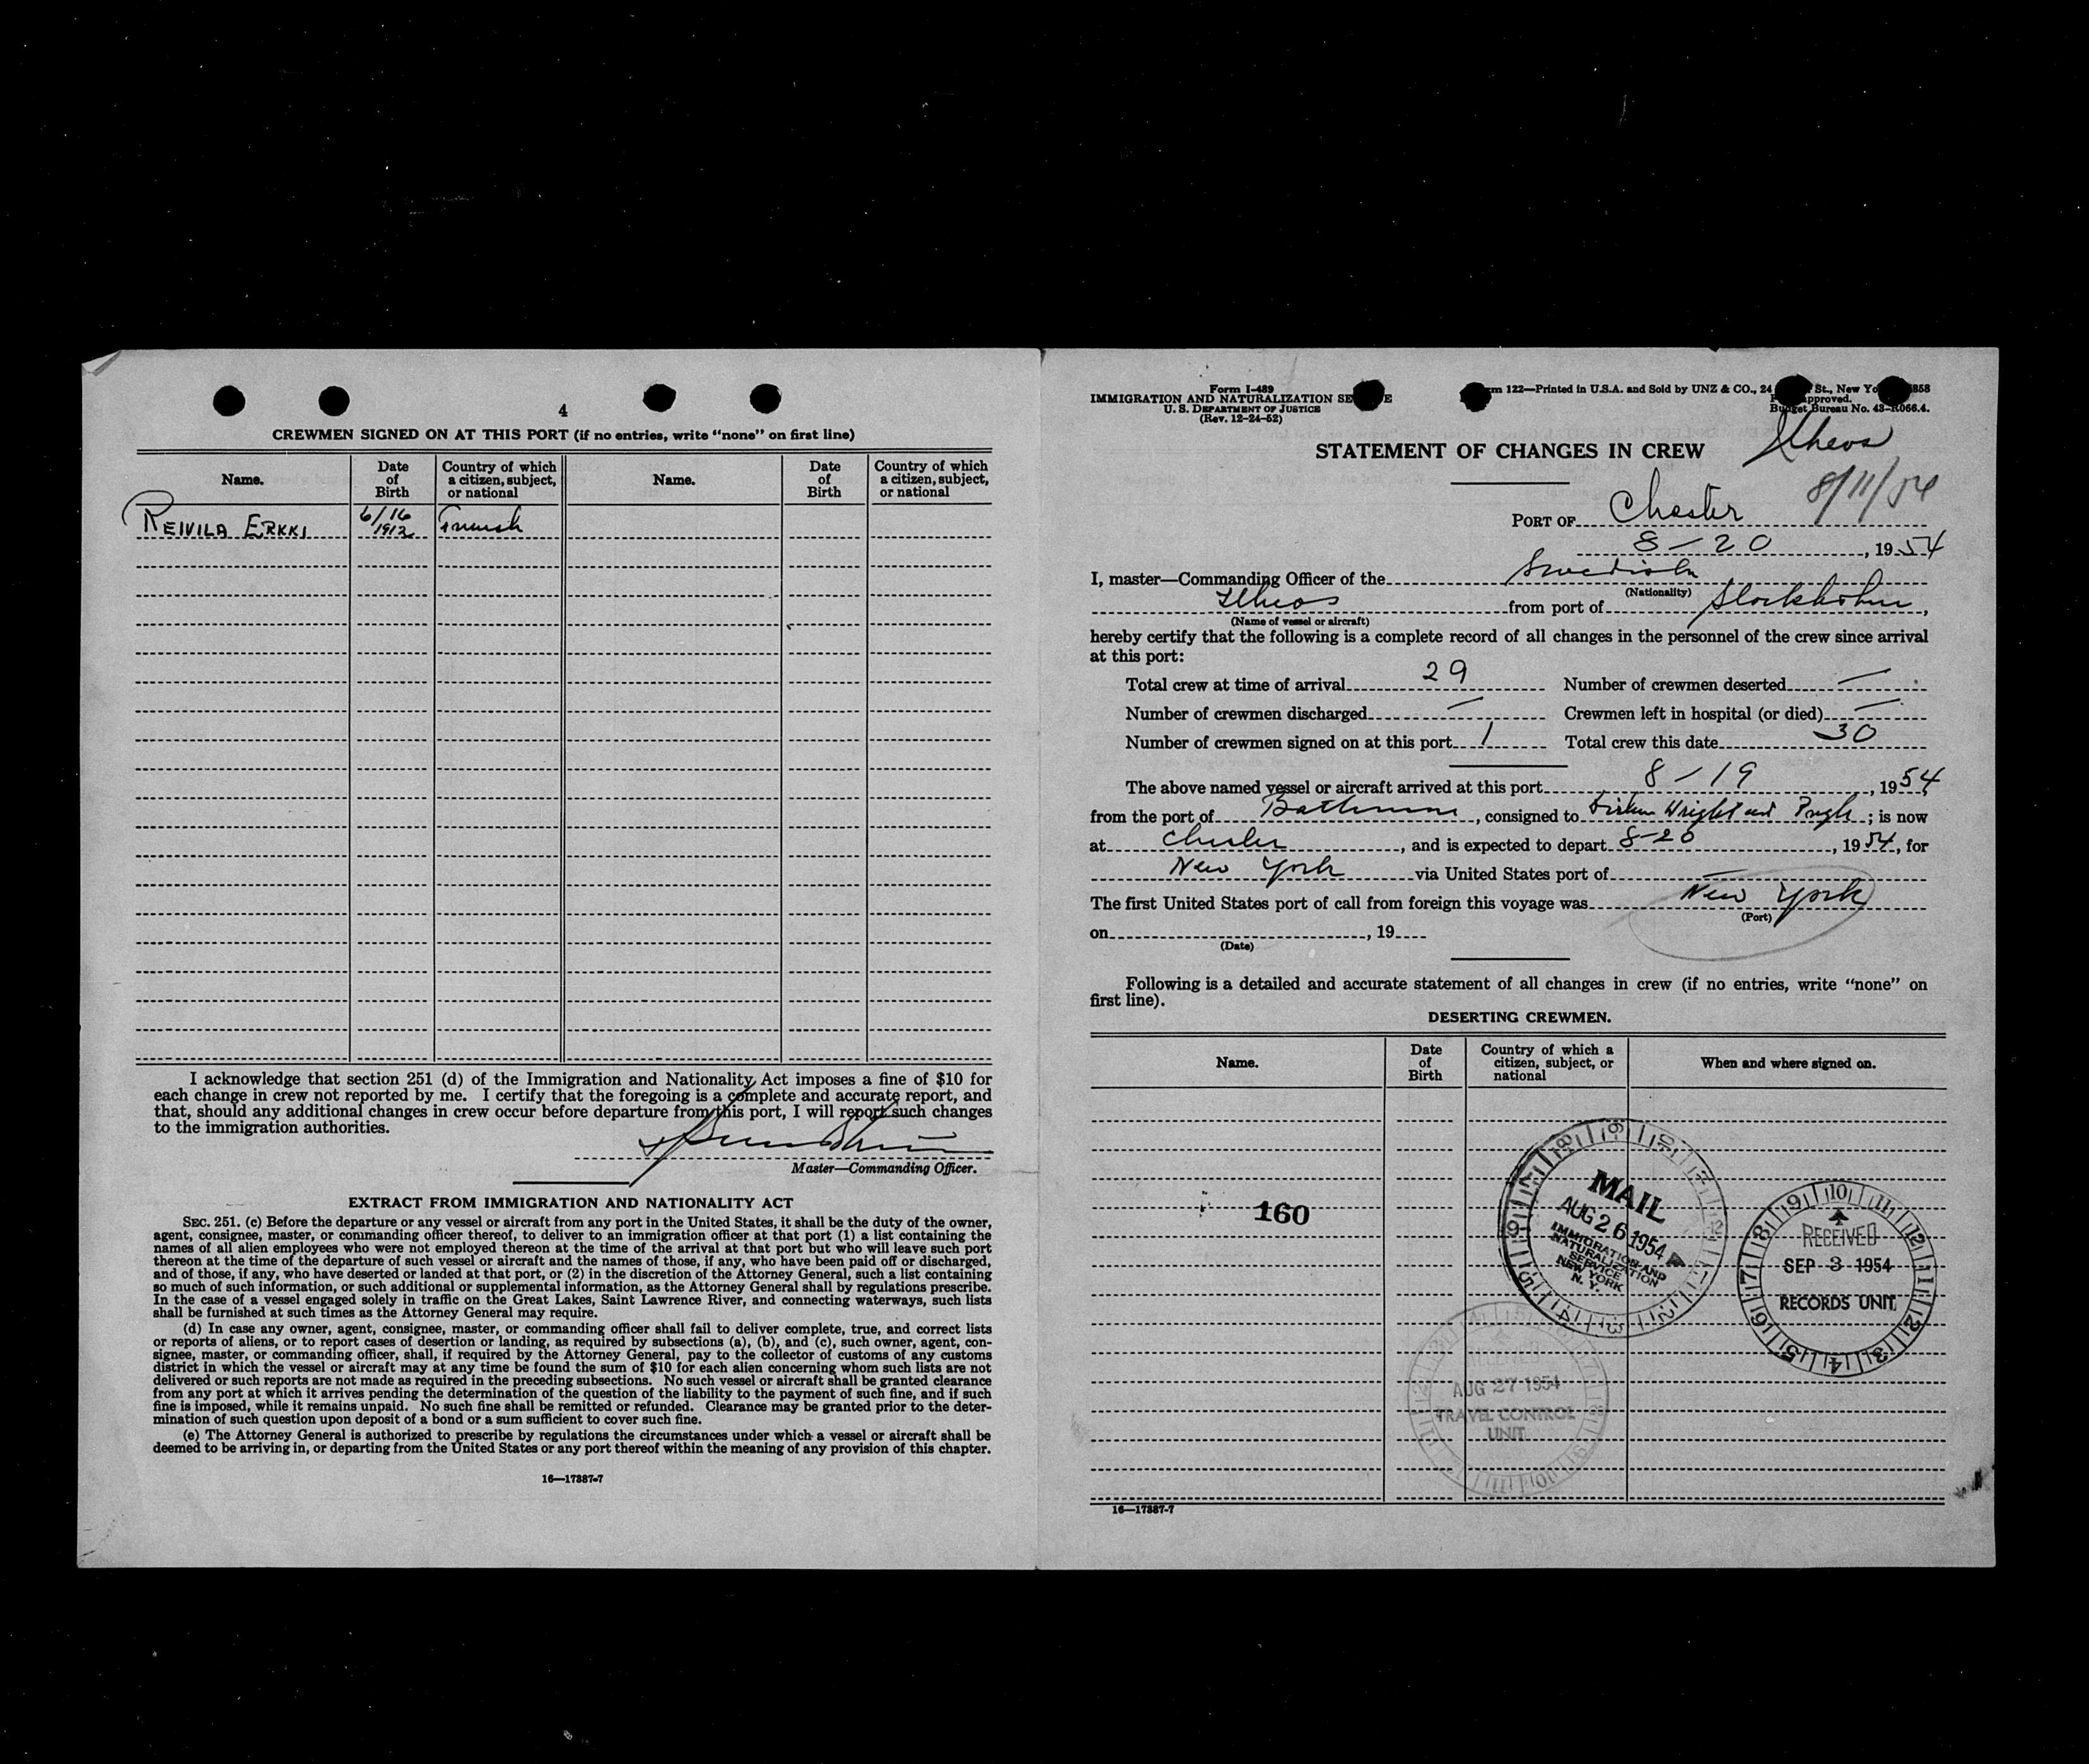 4
CREWMEN SIGNED ON AT THIS PORT (if no entries, write “none” on first line)
Name. Date of Birth Country of which a citizen, subject, or national Name. Date of Birth Country of which a citizen, subject, or national
REIVILA ERKKI 6/16 1912
I acknowledge that section 251 (d) of the Immigration and Nationality Act imposes a fine of $10 for
each change in crew not reported by me. I certify that the foregoing is a complete and accurate report, and
that, should any additional changes in crew occur before departure from this port, I will report such changes
to the immigration authorities.
Master—Commanding Officer.
EXTRACT FROM IMMIGRATION AND NATIONALITY ACT
SEC. 251. (c) Before the departure or any vessel or aircraft from any port in the United States, it shall be the duty of the owner,
agent, consignee, master, or commanding officer thereof, to deliver to an immigration officer at that port (1) a list containing the
names of all alien employees who were not employed thereon at the time of the arrival at that port but who will leave such port
thereon at the time of the departure of such vessel or aircraft and the names of those, if any, who have been paid off or discharged,
and of those, if any, who have deserted or landed at that port, or (2) in the discretion of the Attorney General, such a list containing
so much of such information, or such additional or supplemental information, as the Attorney General shall by regulations prescribe.
In the case of a vessel engaged solely in traffic on the Great Lakes, Saint Lawrence River, and connecting waterways, such lists
shall be furnished at such times as the Attorney General may require.
(d) In case any owner, agent, consignee, master, or commanding officer shall fail to deliver complete, true, and correct lists
or reports of aliens, or to report cases of desertion or landing, as required by subsections (a), (b), and (c), such owner, agent, con-
signee, master, or commanding officer, shall, if required by the Attorney General, pay to the collector of customs of any customs
district in which the vessel or aircraft may at any time be found the sum of $10 for each alien concerning whom such lists are not
delivered or such reports are not made as required in the preceding subsections. No such vessel or aircraft shall be granted clearance
from any port at which it arrives pending the determination of the question of the liability to the payment of such fine, and if such
fine is imposed, while it remains unpaid. No such fine shall be remitted or refunded. Clearance may be granted prior to the deter-
mination of such question upon deposit of a bond or a sum sufficient to cover such fine.
(e) The Attorney General is authorized to prescribe by regulations the circumstances under which a vessel or aircraft shall be
deemed to be arriving in, or departing from the United States or any port thereof within the meaning of any provision of this chapter.
16—17887-7
Form I-489
IMMIGRATION AND NATURALIZATION SE E
U. S. DEPARTMENT OF JUSTICE
(Rev. 12-24-52)
rm 122—Printed in U.S.A. and Sold by UNZ & CO., 24 St., New Yo 8858
approved.
Budget Bureau No. 43-R066.4.
Ilheos
STATEMENT OF CHANGES IN CREW
8/11/54
PORT OF Chester
8-20, 1954
I, master—Commanding Officer of the Swedish
(Nationality)
Ilheos from port of Stockholm,
(Name of vessel or aircraft)
hereby certify that the following is a complete record of all changes in the personnel of the crew since arrival
at this port:
Total crew at time of arrival 29 Number of crewmen deserted —
Number of crewmen discharged — Crewmen left in hospital (or died) —
Number of crewmen signed on at this port 1 Total crew this date 30
The above named vessel or aircraft arrived at this port 8-19, 1954,
from the port of, consigned to Wright and Pugh; is now
at Chester, and is expected to depart 8-20, 1954, for
New York via United States port of —
The first United States port of call from foreign this voyage was New York
(Port)
on, 19
(Date)
Following is a detailed and accurate statement of all changes in crew (if no entries, write “none” on
first line).
DESERTING CREWMEN.
Name. Date of Birth Country of which a citizen, subject, or national When and where signed on.
160
MAIL
AUG 26 1954
IMMIGRATION AND
NATURALIZATION
SERVICE
NEW YORK
N. Y.
RECEIVED
SEP 3 1954
RECORDS UNIT
AUG 27 1954
TRAVEL CONTROL
UNIT
16—17887-7